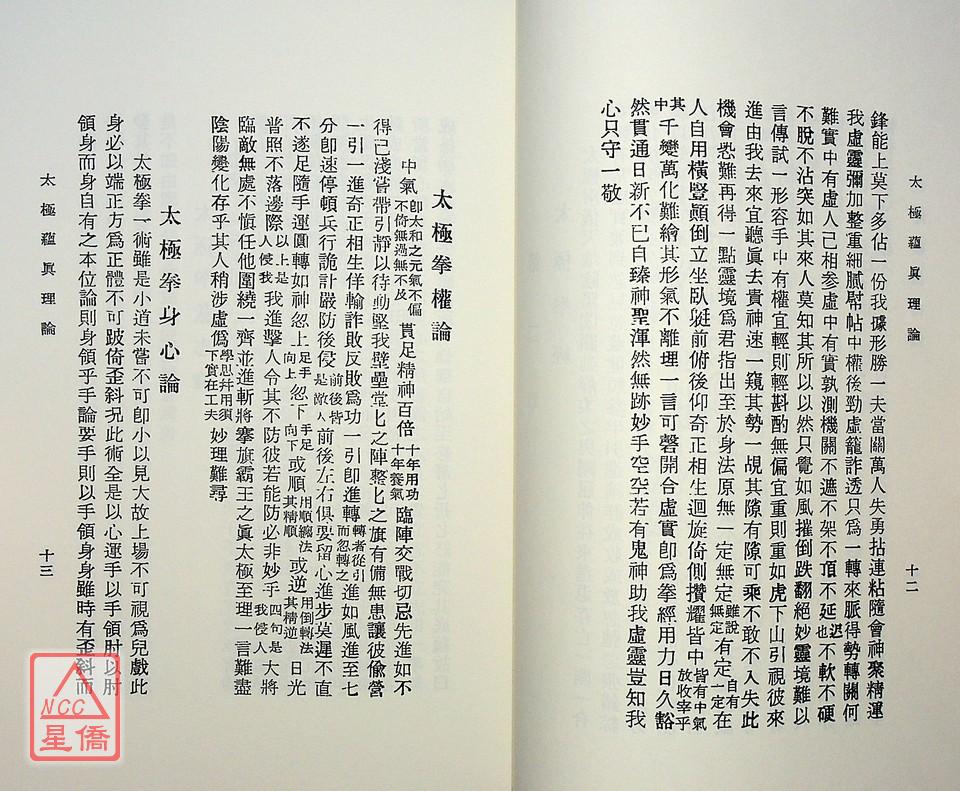 太極蘊真理論
十二
鋒能上莫下多佔一份我據形勝一夫當關萬人失勇拈連粘隨會神聚精運
我虛靈彌加整重細膩幇帖中權後勁虛籠詐透只為一轉來脈得勢轉關何
難實中有虛人己相參虛中有實孰測機關不遮不架不頂不延遲也不軟不硬
不脫不沾突如其來人莫知其所以以然只覺如風摧倒跌翻絕妙靈境難以
言傳試一形容手中有權宜輕則輕斟酌無偏宜重則重如虎下山引視彼來
進由我去來宜聽真去貴神速一窺其勢一覘其隙有隙可乘不敢不入失此
機會恐難再得一點靈境為君指出至於身法原無一定無定雖說無定有定自有一定在
人自用橫豎顛倒立坐臥挺前俯後仰奇正相生迴旋倚側攢耀皆中皆有中氣放收宰乎其中
千變萬化難繪其形氣不離理一言可罄開合虛實即為拳經用力日久豁
然貫通日新不已自臻神聖渾然無跡妙手空空若有鬼神助我虛靈豈知我
心只守一敬
太極拳權論
中氣即太和之元氣不偏不倚無過無不及貫足精神百倍十年用功十年養氣臨陣交戰切忌先進如不
得已淺嘗帶引靜以待動堅我壁壘堂匕之陣整匕之旗有備無患讓彼偷營
一引一進奇正相生佯輸詐敗反敗為功一引即進轉轉者從引而忽轉之進如風進至七
分即速停頓兵行詭計嚴防後侵前後皆是敵人前後左右俱要留心進步莫遲不直
不遂足隨手運圓轉如神忽上足手向上忽下手足向下或順用順纏法其精順或逆用倒轉法其精逆日光
普照不落邊際以上是人侵我我進擊人令其不防彼若能防必非妙手四句是我侵人大將
臨敵無處不慎任他圍繞一齊並進斬將搴旗霸王之真太極至理一言難盡
陰陽變化存乎其人稍涉虛偽學思并用須下實在工夫妙理難尋
太極拳身心論
太極拳一術雖是小道未嘗不可即小以見大故上場不可視為兒戲此
身必以端正方為正體不可跛倚歪斜況此術全是以心運手以手領肘以肘
領身而身自有之本位論則身領乎手論要手則以手領身身雖時有歪斜而
太極蘊真理論
十三
NCC
星僑